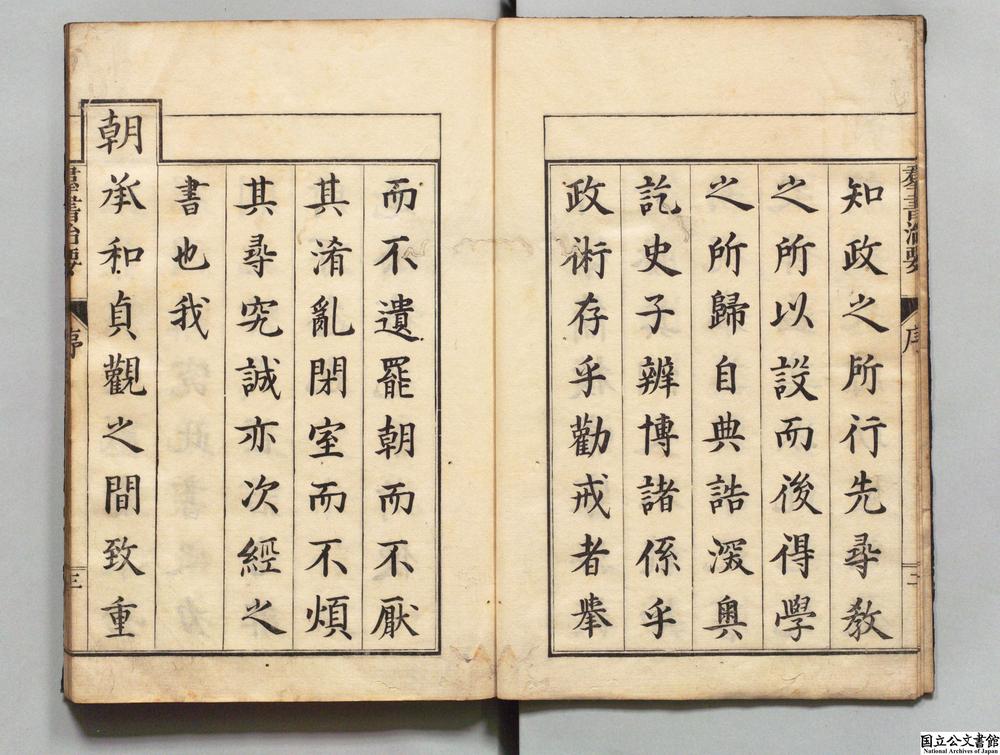 知政之所行先尋教
之所以設而後得學
之所歸自典誥深奧
訖史子辨博諸係乎
政術存乎勸戒者舉
羣書治要
序
二
而不遺罷朝而不厭
其淆亂閉室而不煩
其尋究誠亦次經之
書也我
朝承和貞觀之間致重
羣書治要
序
三
国立公文書館
National Archives of Japan